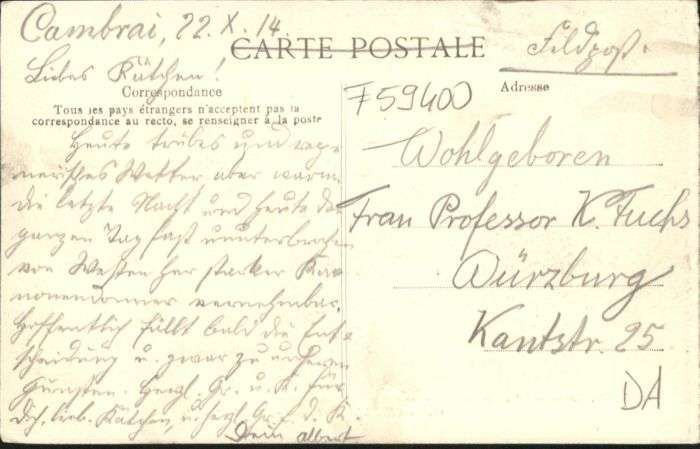 Cambrai, 22. X. 14.
CARTE POSTALE
Feldpost.
Liebes Kätchen!
Correspondance
Tous les pays étrangers n'acceptent pas la
correspondance au recto, se renseigner à la poste
Adresse
F59400
Heute trübes und reg-
nerisches Wetter aber warm,
die letzte Nacht und heute den
ganzen Tag fast ununterbrochen
von Westen her starker Ka-
nonendonner vernehmbar.
Hoffentlich fällt bald die Ent-
scheidung u. zwar zu unseren
Gunsten. Herzl. Gr. u. K. für
Dich, lieb. Kätchen, u. herzl. Gr. f. d. K.
Dein Albert
Wohlgeboren
Frau Professor K. Fuchs
Würzburg
Kantstr. 25
DA